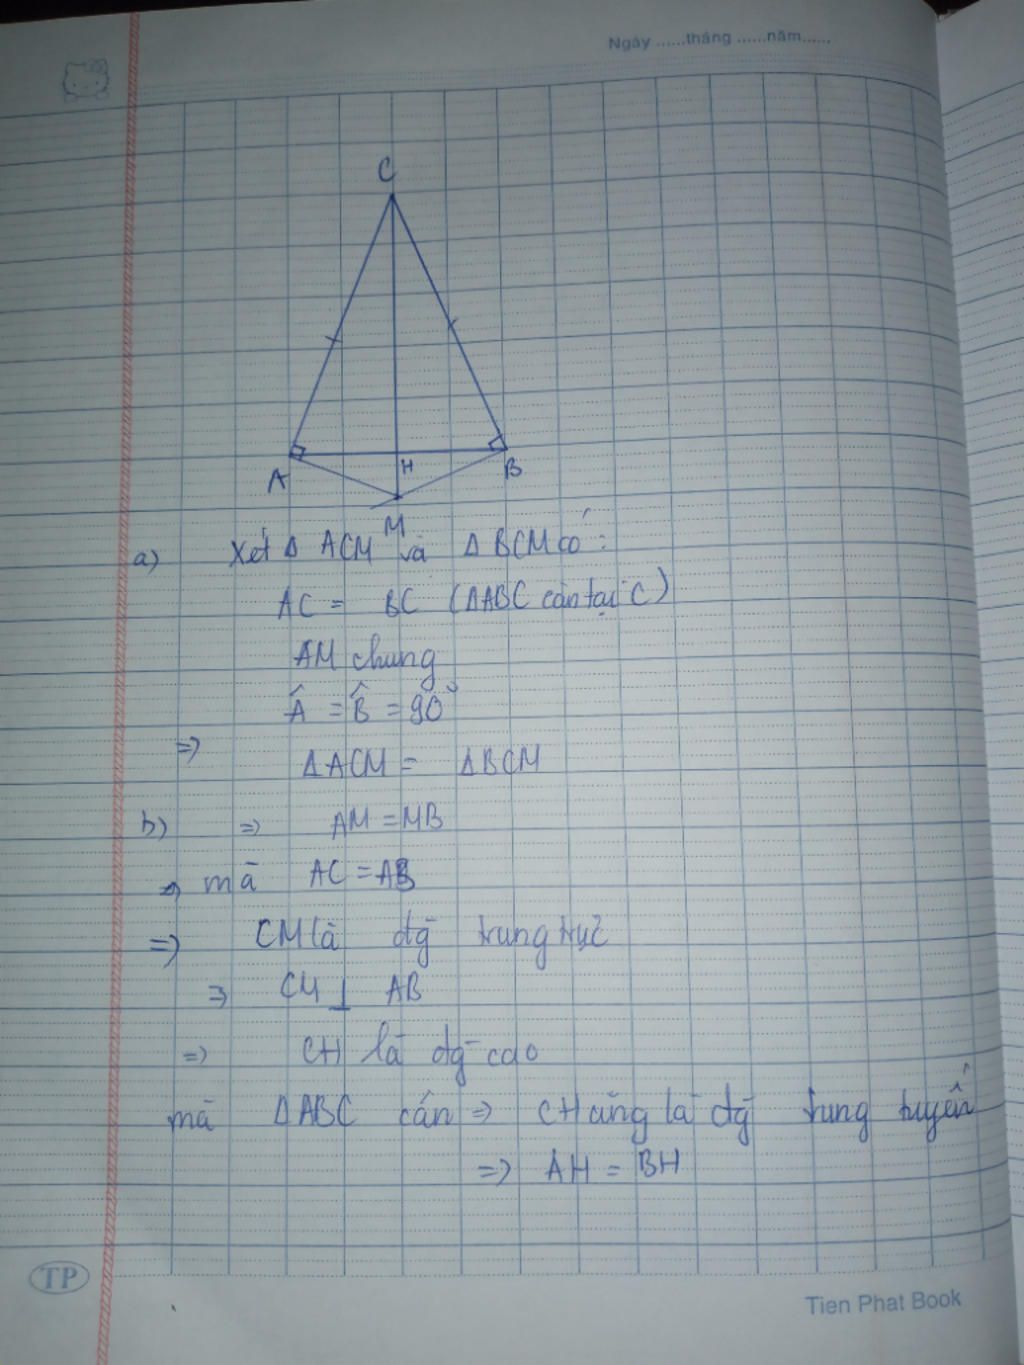 Ngày ......tháng ......năm......
C
A
H
B
M
a) Xét Δ ACM và Δ BCM có :
AC = BC (ΔABC cân tại C)
AM chung
Â = B̂ = 90°
=> ΔACM = ΔBCM
b) => AM = MB
=> mà AC = AB
=> CM là đg trung trực
=> CM ⊥ AB
=> CH là đg cao
mà ΔABC cân => CH cũng là đg trung tuyến
=> AH = BH
TP
Tien Phat Book